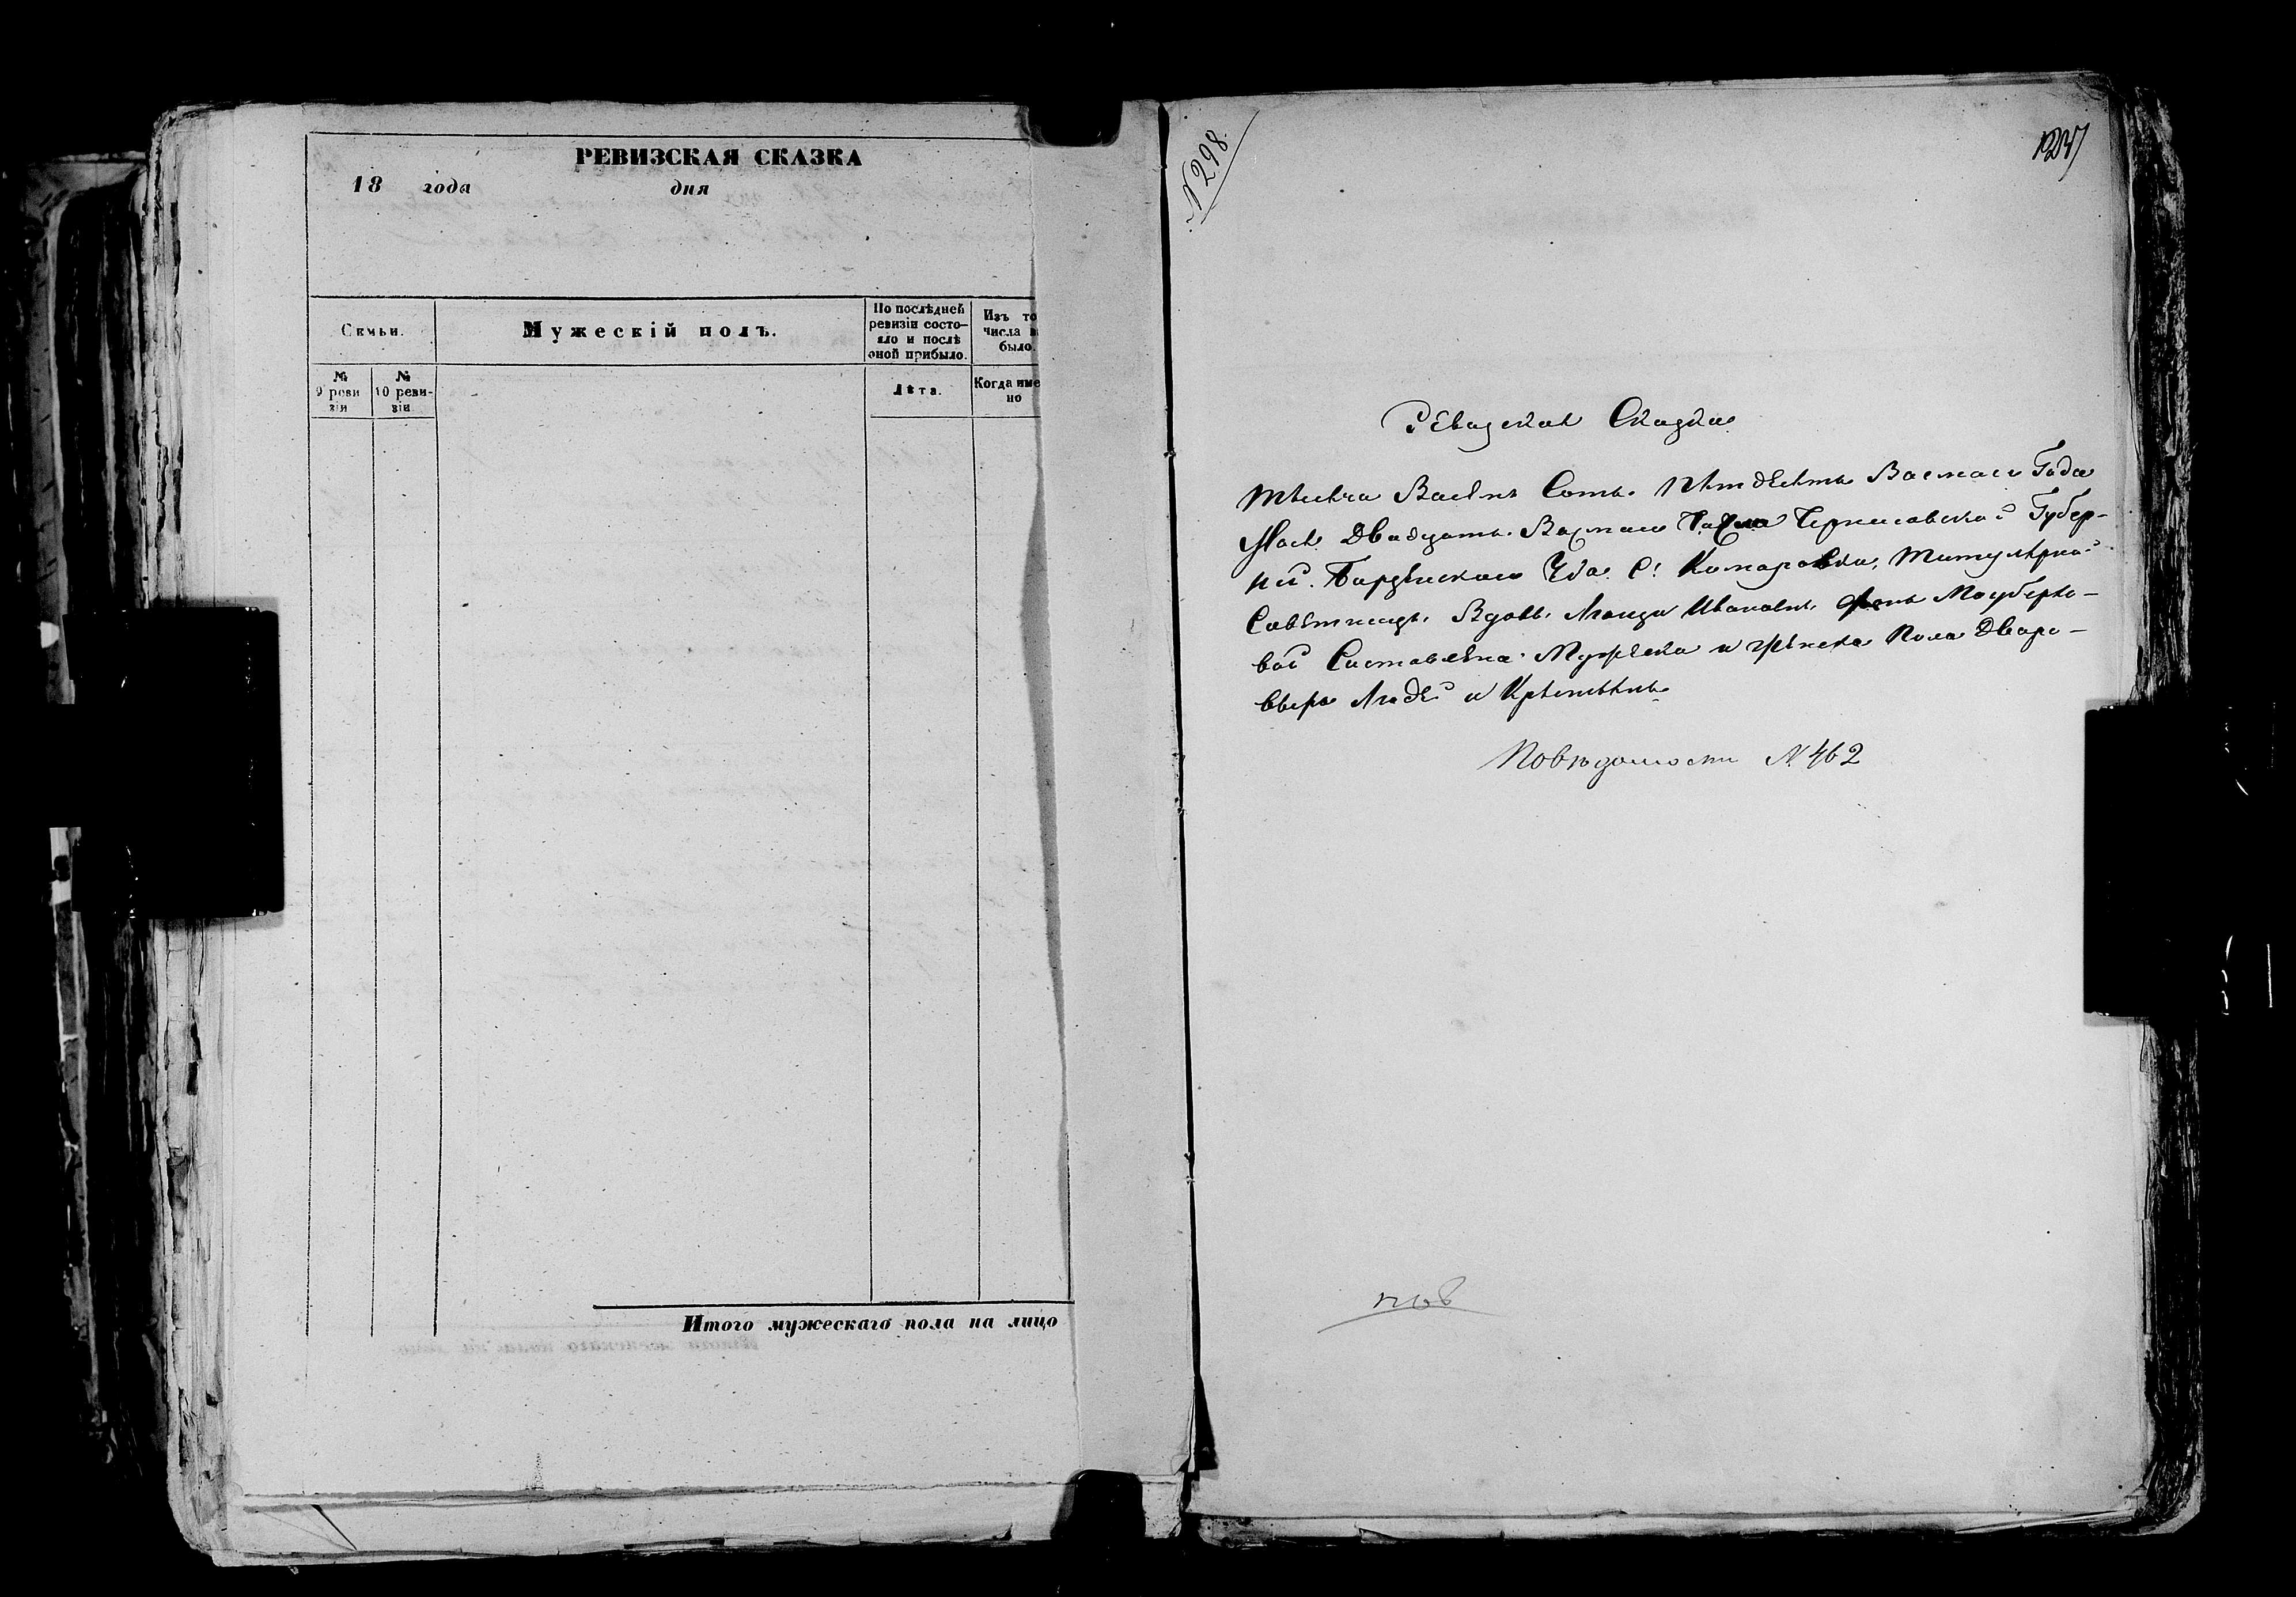 РЕВИЗСКАЯ СКАЗКА
18 года дня
Семьи.
Мужескій полъ.
По послѣдней
ревизіи состо-
яло и послѣ
оной прибыло.
Изъ то
числа в
было.
№
9 реви
зіи
№
10 реви-
зіи
Лѣта.
Когда име
но
Итого мужескаго пола на лицо
№ 298
Ревизская Сказка
Тысяча Васемъ Сотъ Пятдесятъ Васмаго Года
Мая Двадцать Васмаго Черниговской Губер-
ніи Борзенскаго Уѣз. С: Комаровки, Титулярной
Совѣтницы Вдовы Ивановны фонъ
вой Составлена Мужеска и женска Пола Дваро-
выхъ Людей и Крестьянъ
По вѣдомости № 462